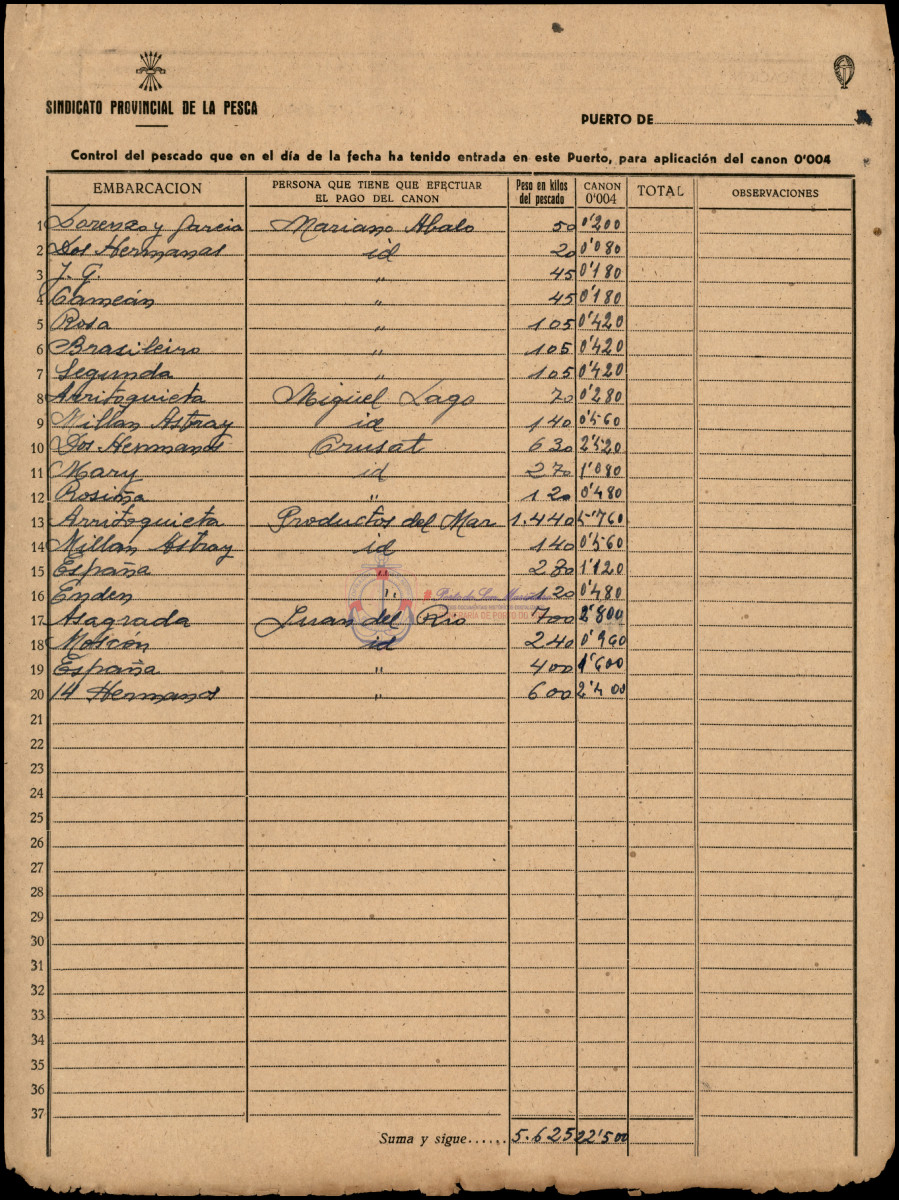 SINDICATO PROVINCIAL DE LA PESCA
PUERTO DE
Control del pescado que en el día de la fecha ha tenido entrada en este Puerto, para aplicación del canon 0'004
EMBARCACION PERSONA QUE TIENE QUE EFECTUAR EL PAGO DEL CANON Peso en kilos del pescado CANON 0'004 TOTAL OBSERVACIONES
1 Lorenzo y Garcia Mariano Abalo 50 0'200
2 Dos Hermanas id 20 0'080
3 J. G. " 45 0'180
4 Cameán " 45 0'180
5 Rosa " 105 0'420
6 Brasileiro " 105 0'420
7 Segunda " 105 0'420
8 Arritoquieta Miguel Lago 70 0'280
9 Millan Astray id 140 0'560
10 Dos Hermanos Crusat 630 2'520
11 Mary id 270 1'080
12 Rosiña " 120 0'480
13 Arritoquieta Productos del Mar 1.440 5'760
14 Millan Astray id 140 0'560
15 España " 280 1'120
16 Enden " 120 0'480
17 Asagrada Juan del Rio 700 2'800
18 Moscón id 240 0'960
19 España " 400 1'600
20 14 Hermanos " 600 2'400
21
22
23
24
25
26
27
28
29
30
31
32
33
34
35
36
37
Suma y sigue...... 5.625 22'500